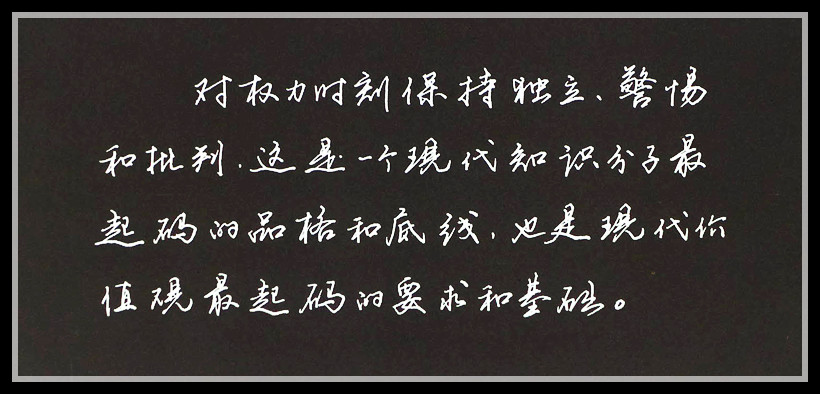 对权力时刻保持独立、警惕
和批判,这是一个现代知识分子最
起码的品格和底线,也是现代价
值观最起码的要求和基础。